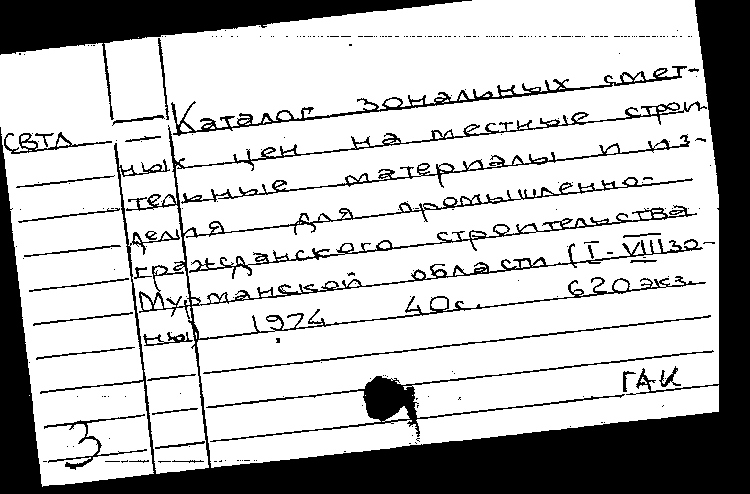 СВТЛ
Каталог зональных смет-
ных цен на местные строи
тельные материалы и из-
делия для промышленно-
гражданского строительства
Мурманской области (I-VIII зо-
ны) 1974 40с. 620 экз.
ГАК
3